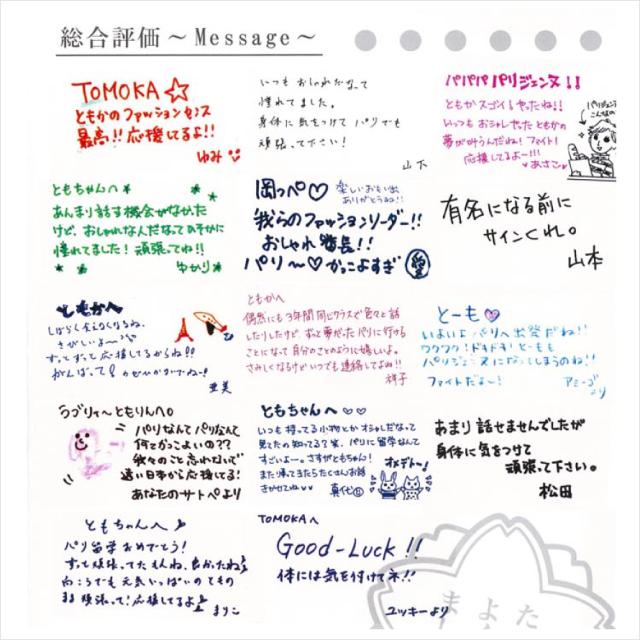 総合評価～Message～
TOMOKA☆
ともかのファッションセンス
最高!!応援してるよ!!
ゆみ
いつもおしゃれだなって
憧れてました。
身体に気をつけてパリでも
頑張って下さい!
山下
パパパパリジェンヌ!!
ともかスゴイじゃったね!!
いっつもおシャレやったともかの
夢が叶うんだね!ファイト!
応援してるよー!!!
あさこ
パリジェンヌ
こんなの
ともちゃんへ
あんまり話す機会がなかった
けど、おしゃれなんだなってひそかに
憧れてました!頑張ってね!!
ゆかり
岡っぺ♡
楽しいおもい出
ありがとうね!!
我らのファッションリーダー!!
おしゃれ番長!!
パリ〜♡かっこよすぎ
愛
有名になる前に
サインくれ。
山本
ともかへ
しばらく会えなくなるね、
さびしいよ〜
ずっとずっと応援してるからね!!
がんばって!かぜひかないでねー!
亜美
ともかへ
偶然にも3年間同じクラスで色々と話
したりしたけど、ずっと夢だったパリに行ける
ことになって自分のことのように嬉しいよ。
さみしくなるけどいつでも連絡してよね!!
祥子
とーも
いよいよパリへ出発だね!!
ワクワク!ドキドキ!とーもも
パリジェンヌになってしまうのね!!
ファイトだよー!
アミーゴより
ラブリィ〜ともりんへ。
パリなんてパリなんて
何てかっこよいの??
我々のこと忘れないで
遠い日本から応援してる!
あなたのサトペより
ともちゃんへ♡♡
いつも持ってる小物とかオシャレだなって
見てたの知ってる?笑、パリに留学なんて
すごいよー。さすがともちゃん!
また帰ってきたらたくさんお話
きかせてね♡♡
真代
オメデトー!
あまり話せませんでしたが
身体に気をつけて
頑張って下さい。
松田
ともちゃんへ♪
パリ留学おめでとう!
ずっと頑張ってたもんね、良かったね
向こうでも元気いっぱいのともの
まま頑張って!応援してるよ♪
まりこ
TOMOKAへ
Good-Luck!!
体には気を付けてネ!!
ユッキーより
たよま